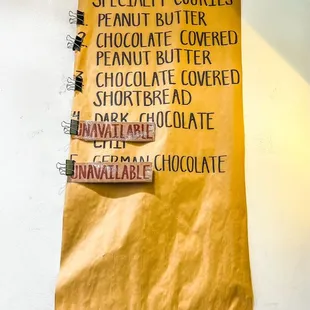 SPECIALTY COOKIES
PEANUT BUTTER
CHOCOLATE COVERED
PEANUT BUTTER
CHOCOLATE COVERED
SHORTBREAD
DARK CHOCOLATE
UNAVAILABLE
CHIP
GERMAN CHOCOLATE
UNAVAILABLE